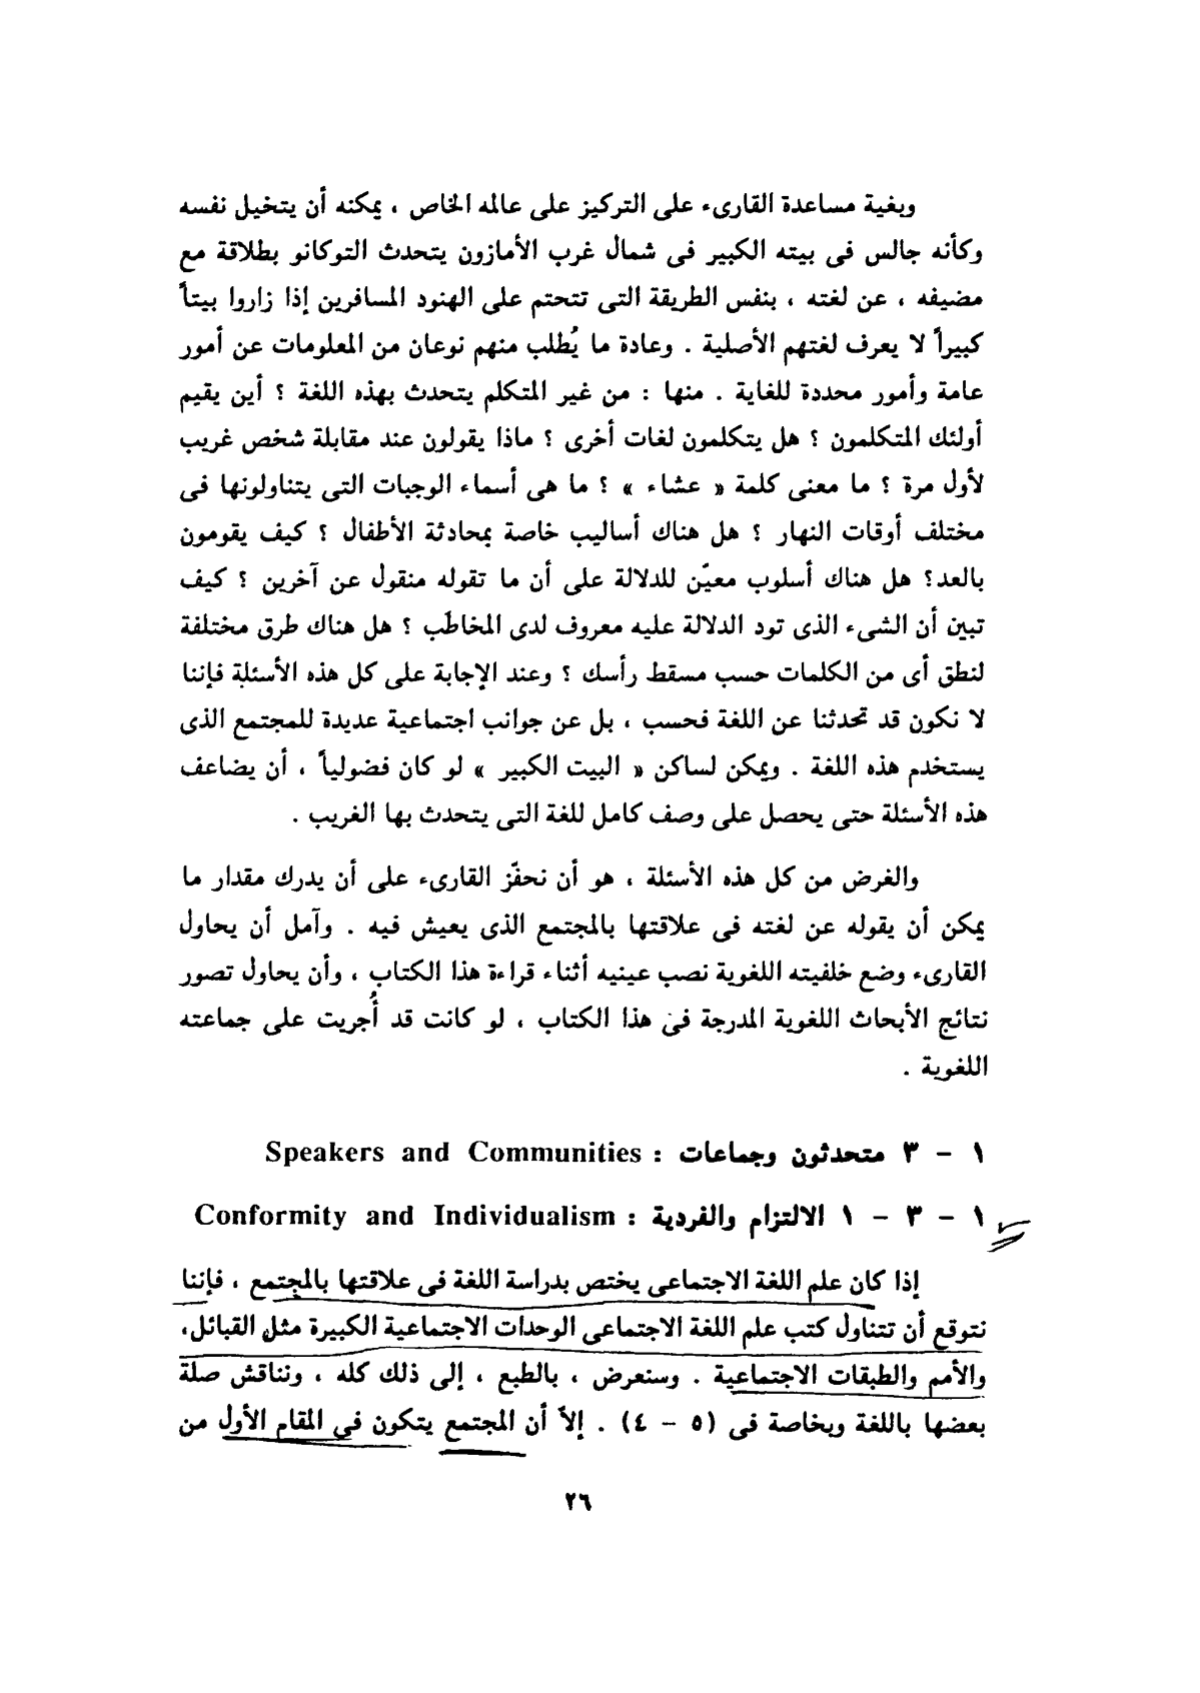 وبغية مساعدة القارىء على التركيز على عالمه الخاص ، يمكنه أن يتخيل نفسه
وكأنه جالس فى بيته الكبير فى شمال غرب الأمازون يتحدث التوكانو بطلاقة مع
مضيفه ، عن لغته ، بنفس الطريقة التى تتحتم على الهنود المسافرين إذا زاروا بيتاً
كبيراً لا يعرف لغتهم الأصلية . وعادة ما يُطلب منهم نوعان من المعلومات عن أمور
عامة وأمور محددة للغاية . منها : من غير المتكلم يتحدث بهذه اللغة ؟ أين يقيم
أولئك المتكلمون ؟ هل يتكلمون لغات أخرى ؟ ماذا يقولون عند مقابلة شخص غريب
لأول مرة ؟ ما معنى كلمة « عشاء » ؟ ما هى أسماء الوجبات التى يتناولونها فى
مختلف أوقات النهار ؟ هل هناك أساليب خاصة بمحادثة الأطفال ؟ كيف يقومون
بالعد؟ هل هناك أسلوب معيّن للدلالة على أن ما تقوله منقول عن آخرين ؟ كيف
تبين أن الشىء الذى تود الدلالة عليه معروف لدى المخاطَب ؟ هل هناك طرق مختلفة
لنطق أى من الكلمات حسب مسقط رأسك ؟ وعند الإجابة على كل هذه الأسئلة فإننا
لا نكون قد تحدثنا عن اللغة فحسب ، بل عن جوانب اجتماعية عديدة للمجتمع الذى
يستخدم هذه اللغة . ويمكن لساكن « البيت الكبير » لو كان فضولياً ، أن يضاعف
هذه الأسئلة حتى يحصل على وصف كامل للغة التى يتحدث بها الغريب .
والغرض من كل هذه الأسئلة ، هو أن نحفّز القارىء على أن يدرك مقدار ما
يمكن أن يقوله عن لغته فى علاقتها بالمجتمع الذى يعيش فيه . وآمل أن يحاول
القارىء وضع خلفيته اللغوية نصب عينيه أثناء قراءة هذا الكتاب ، وأن يحاول تصور
نتائج الأبحاث اللغوية المدرجة فى هذا الكتاب ، لو كانت قد أُجريت على جماعته
اللغوية .
١ - ٣ متحدثون وجماعات : Speakers and Communities
١ - ٣ - ١ الالتزام والفردية : Conformity and Individualism
إذا كان علم اللغة الاجتماعى يختص بدراسة اللغة فى علاقتها بالمجتمع ، فإننا
نتوقع أن تتناول كتب علم اللغة الاجتماعى الوحدات الاجتماعية الكبيرة مثل القبائل،
والأمم والطبقات الاجتماعية . وسنعرض ، بالطبع ، إلى ذلك كله ، ونناقش صلة
بعضها باللغة وبخاصة فى (٥ - ٤) . إلاّ أن المجتمع يتكون فى المقام الأول من
٢٦